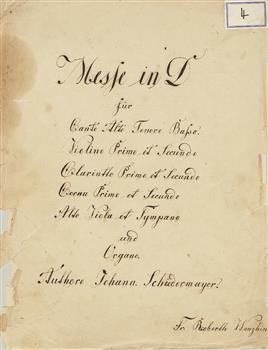 4
Messe in D
für
Canto Alto Tenore Basso.
Violino Primo et Secundo
Clarinetto Primo et Secundo
Cornu Primo et Secundo
Alto Viola et Tympano
und
Organo.
Authore Johann. Schiedermayer.
Fr.